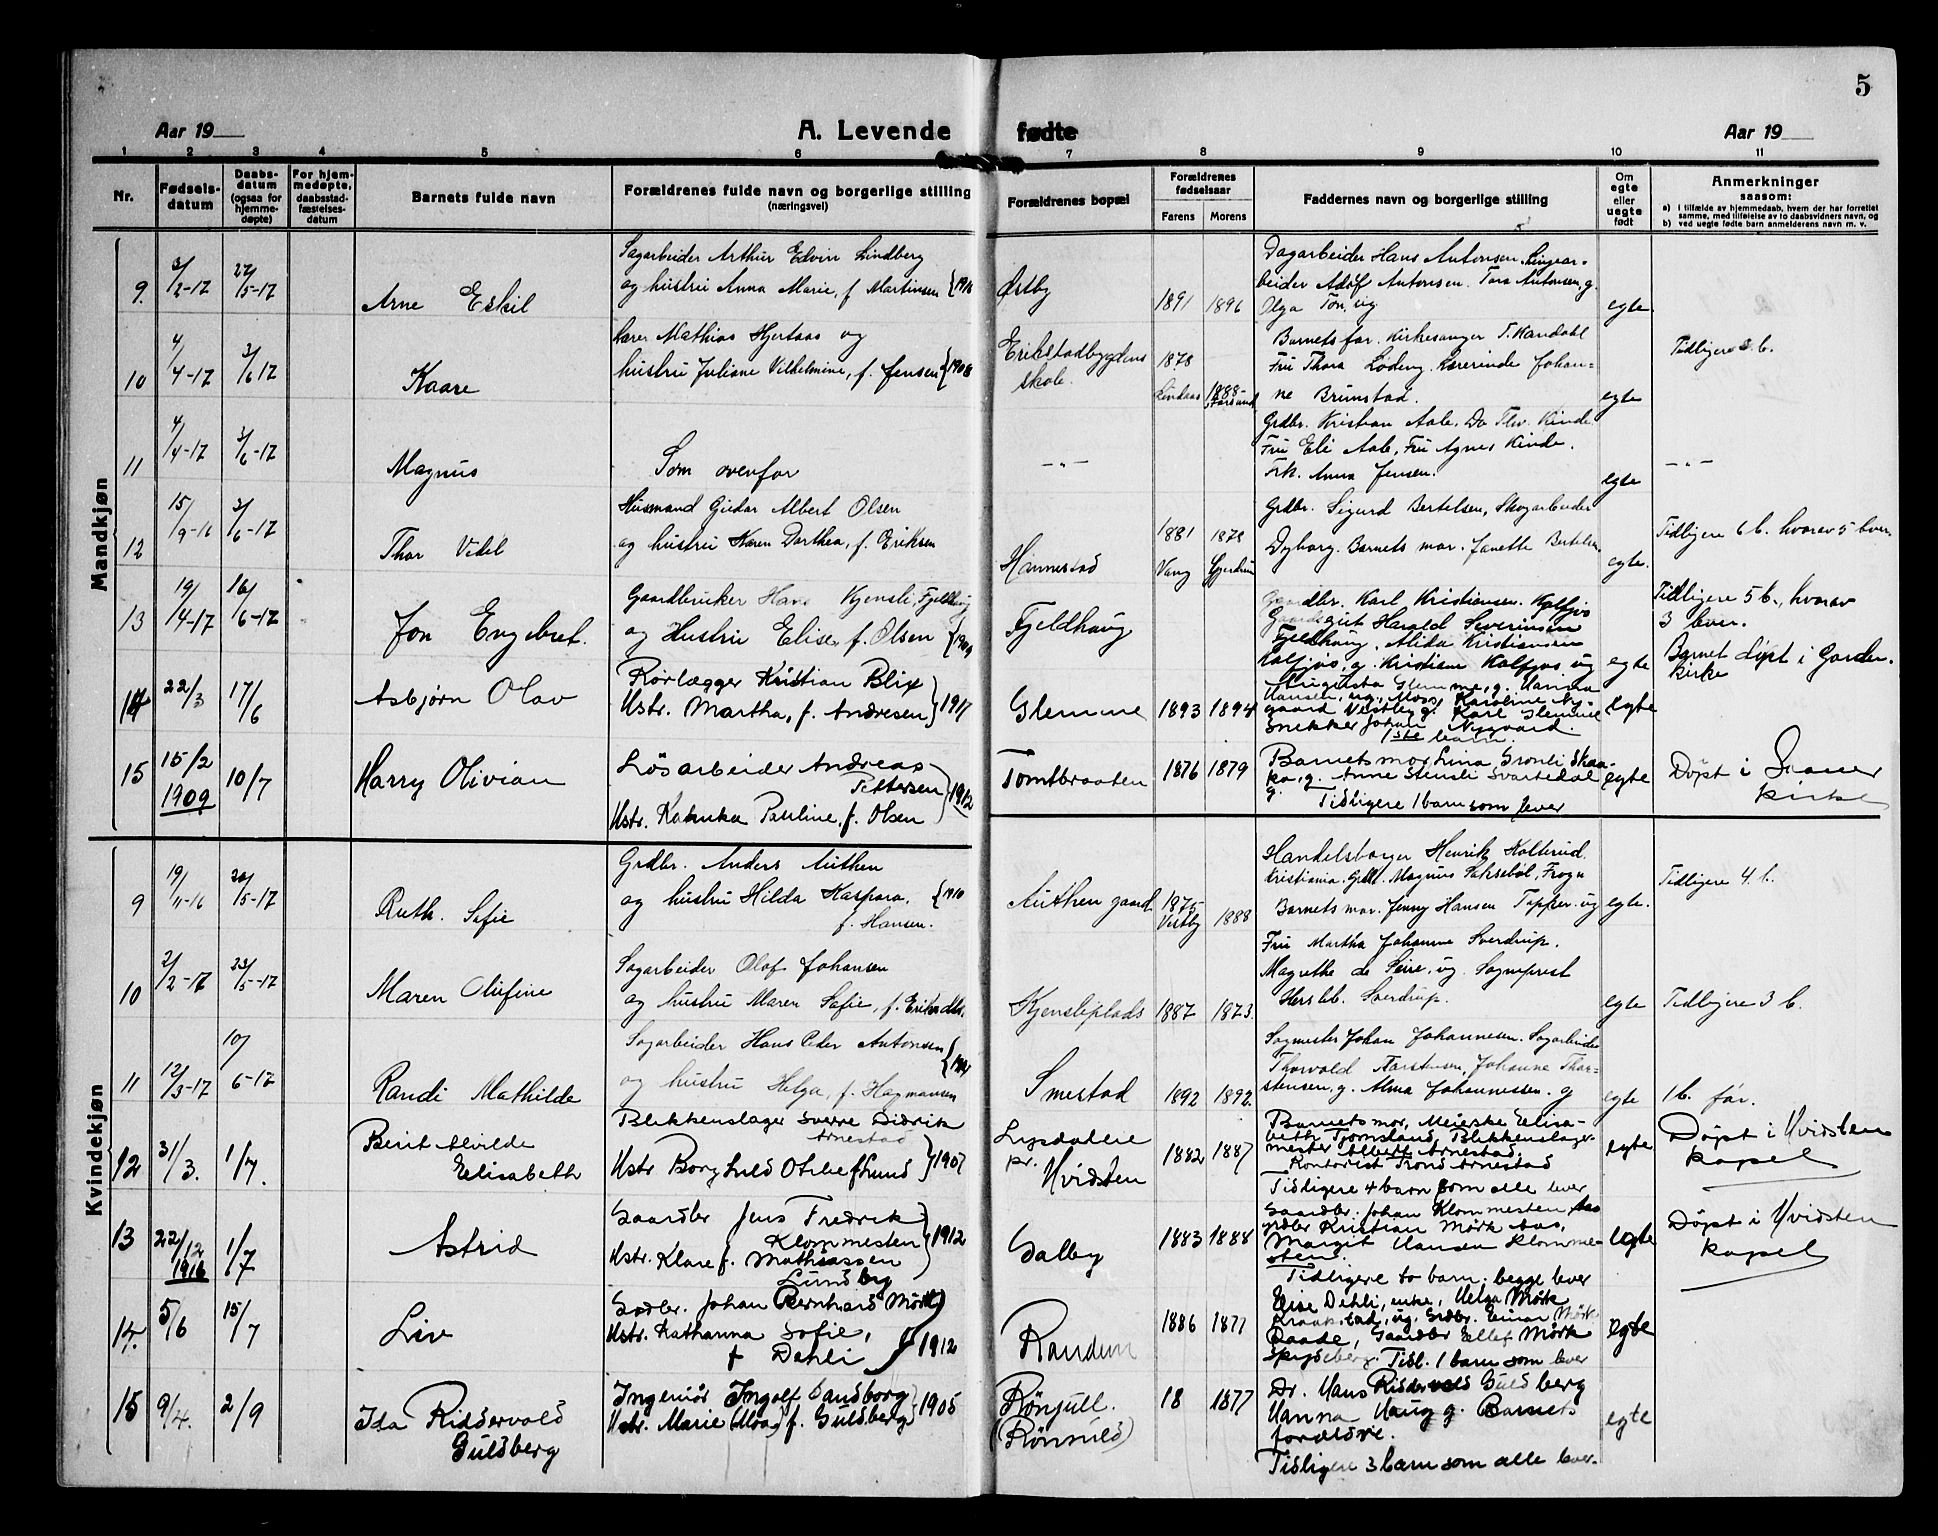 5
Aar 19
A. Levende fødte
Aar 19
1 2 3 4 5 6 7 8 9 10 11
Nr.
Fødsels-
datum
Daabs-
datum
(ogsaa for
hjemme-
døpte)
For hjem-
medøpte,
daabsstad-
fæstelses-
datum
Barnets fulde navn
Forældrenes fulde navn og borgerlige stilling
(næringsvei)
Forældrenes bopæl
Forældrenes
fødselsaar
Farens
Morens
Faddernes navn og borgerlige stilling
Om
egte
eller
uegte
født
Anmerkninger
saasom:
a) i tilfælde av hjemmedaab, hvem der har forrettet
samme, med tilføielse av to daabsvidners navn, og
b) ved uegte fødte barn anmelderens navn m. v.
Mandkjøn
9. 3/2-17 27/5-17 Arne Eskil
Sagarbeider Arthur Edvin Lindberg
og hustru Anna Marie, f. Martinsen
Østby 1891 1896
Dagarbeider Hans Antonsen.
beider Adolf Antonsen. Tora Antonsen, g.
Olga
egte
10 4/4-17 3/6 17 Kaare
Lærer Mathias Hjertaas og
hustru Juliane Vilhelmine, f. Jensen {1908
Erikstadbygdens
skole.
1878
Lindaas 1888-
Barnets far. Kirkesanger T. Kandahl
Fru Thora Lødeng. Lærerinde Johan-
ne Brunstad.
egte
Tidligere 2 b.
11 4/4-17 3/6-17 Magnus
Som ovenfor
-"-
Grdbr. Kristian Aale. Do Thv. Kinde
Fru Eli Aale, Fru Agnes Kinde.
Frk. Anna Jensen.
egte
-"-
12 15/9-16 3/6-17 Thor Videl
Husmand Gudar Albert Olsen
og hustru Karen Dorthea, f. Eriksen
Hannestad
1881 1878
Vang Gjerdrum
Grdbr. Sigurd Bertelsen, Skogarbeider
Dyborg. Barnets mor. Janette Bertelsen
egte.
Tidligere 6 b. hvorav 5 lever.
13 19/14-17 16/6-17 Jon Engebret.
Gaardbruker Hans Kjensli, Fjeldhaug
og Hustru Elise, f. Olsen {1909
Fjeldhaug
Gaardbr. Karl Kristiansen. Kolfjos
Gaardsgut Harald Severinsen
Fjeldhaug, Alida Kristiansen
Kolfjos, g. Kristian Kolfjos ug
egte
Tidligere 5 b., hvorav
3 lever.
Barnet døpt i Garder
kirke
14 22/3 17/6 Asbjørn Olav
Rørlægger Kristian Blix
Hstr. Martha, f. Andresen} 1917
Glemme 1893 1894
Augusta Glemme, g. Hanna
Hansen, ug., Moss, Karoline Ny-
gaard Vestby g. Karl Glemme
Snekker Johan Nygaard.
1ste barn.
egte
15 15/2
1909 10/7 Harry Olivian
Løsarbeider Andreas
Pettersen
Hstr. Katinka Pauline, f. Olsen} 1912
Tomtbraaten 1876 1879
Barnets mor, Lina Grønli Skaa-
g. Anne Stensli Svartedal
g.
Tidligere 1 barn som lever
egte
Døpt i Saaner
kirke
Kvindekjøn
9 19/11-16 20/5-17 Ruth. Sofie
Grdbr. Anders Authen
og hustru Hilda Kaspara,
f. Hansen. {1910
Authen gaard 1875- 1888
Vestby
Handelsborger Henrik Kolterud.
Kristiania. Grdb. Magnus Saksebøl, Frogn
Barnets mor. Jenny Hansen Topper. ug
egte.
Tidligere 4 b.
10 2/2-17 23/5-17 Maren Olufine
Sagarbeider Olof Johansen
og hustru Maren Sofie, f. Eriksdtr.
Kjensliplads 1887 1873.
Fru Martha Johanne Sverdrup.
Magrethe de Seire, ug. Sogneprest
Hersleb. Sverdrup.
egte
Tidligere 3 b.
11 12/3-17 10/6-17 Randi Mathilde
Sagarbeider Hans Peder Antonsen
og hustru Helga, f. Hagmansen
Smestad 1892 1892.
Sagmester Johan Johannesen. Sagarbeider
Thorvald Torstensen, Johanne Thor-
stensen, g. Alma Johannessen. g
egte
1 b. før.
12 31/3. 1/7. Berit Alvilde
Elisabeth
Blikkenslager Sverre Didrik
Arnestad
Hstr Borghild Otilie f Lund} 1907
Lysdaleie
pr.
Hvidsten
1882 1887
Barnets mor, Meierske Elisa-
beth Tjomsland, Blikkenslager-
mester Albert Arnestad.
Kontorist Trond Arnestad
Tidligere 4 barn som alle lever
egte
Døpt i Hvidsten
kapel
13 22/12
1916 1/7 Astrid
Gaardbr Jens Fredrik
Klommesten
Hstr. Klara f. Mathiassen
Lundby} 1912
Galby 1883 1888
Gaardbr. Johan Klommesten Aas
grdbr Kristian Mørk Aas,
Margit Hansen Klomme-
sten.
Tidligere to barn, begge lever
egte
Døpt i Hvidsten
kapel
14. 5/6 15/7 Liv
Grdbr. Johan Bernhard Mørk
Hstr. Katharina Sofie,
f Dehli} 1912
Randem 1886 1877
Elise Dehli, enke, Helga Mørk
Kraakstad, ug, Grdbr. Einar Mørk
Raade, Gaardbr Ellef Mørk
Spydeberg. Tidl. 1 barn som lever
egte
15 9/4. 2/9 Ida Riddervold
Guldberg
Ingeniør Ingolf Sandborg
Hstr. Marie (Moa) f. Guldberg} 1905
Rønjull.
(Rønsuld)
18 1877
Dr. Hans Riddervold Guldberg
Hanna Haug g. Barnets
forældre.
Tidligere 3 barn som alle lever.
egte